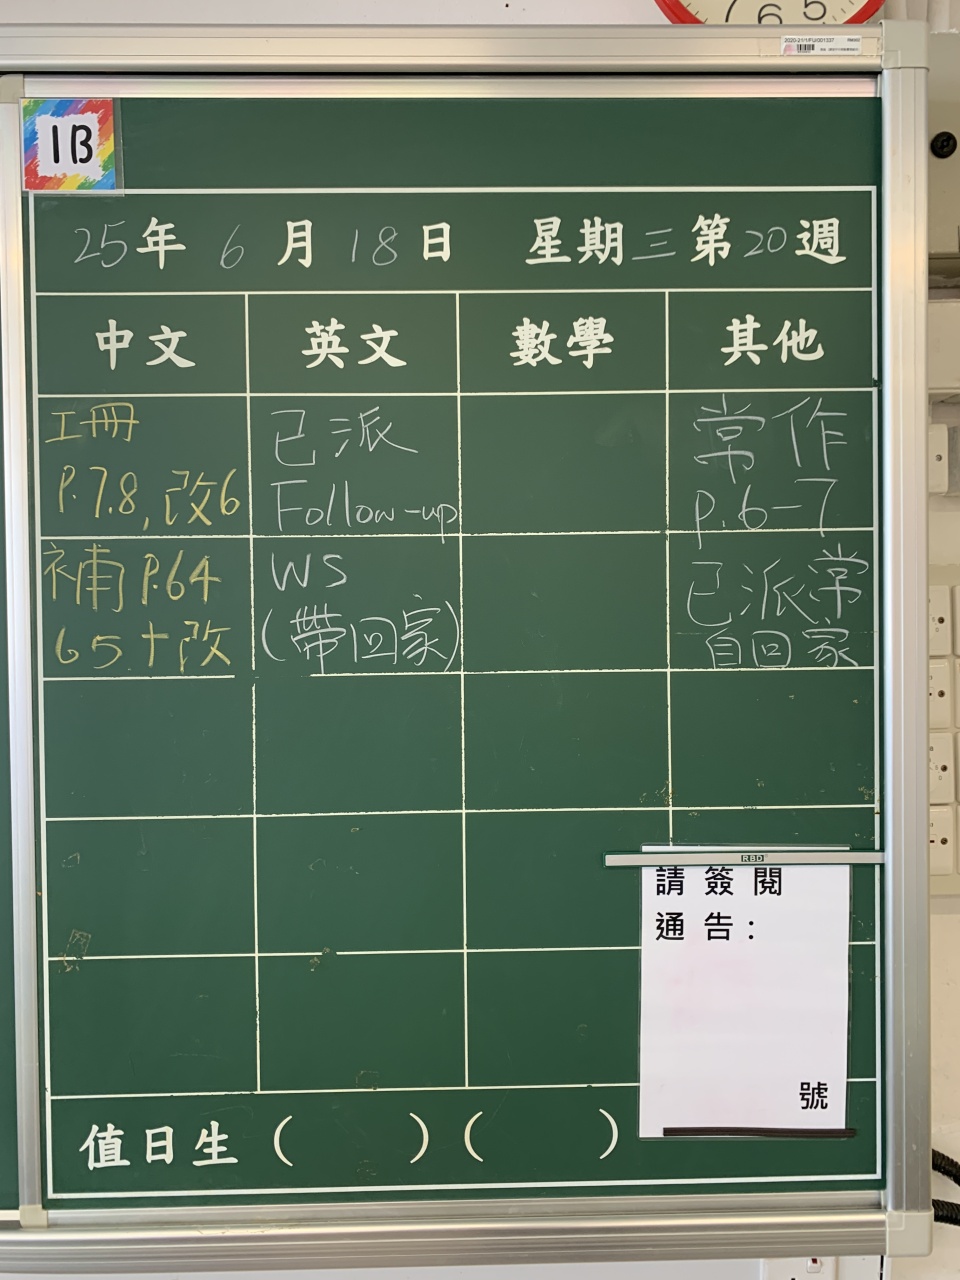 7 6 5
2020-21/1/FU/001337
1B
25年 6月18日 星期三第20週
中文 英文 數學 其他
工冊
P.7.8,改6
補P.64
65.+改
已派
Follow-up
WS
(帶回家)
常作
p.6-7
已派常
自回家
RBD
請簽閱
通告:
號
值日生 ( ) ( )